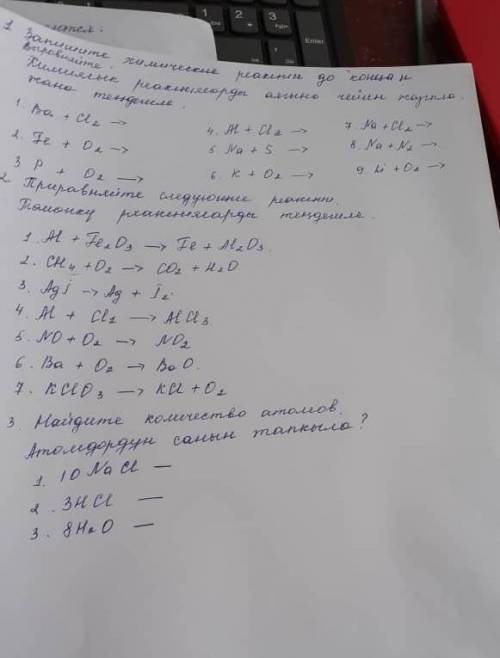 1 Запишите химические реакции до конца и
выровняйте.
Химиялык реакцияларды аягына чейин жазгыла
жана теңдегиле.
1. Ba + Cl2 →
2. Fe + O2 →
3 P + O2 →
4. Al + Cl2 →
5. Na + S →
6. K + O2 →
7. Na + Cl2 →
8. Na + N2 →
9. Li + O2 →
2. Приравняйте следующие реакции.
Томонку реакцияларды теңдегиле.
1. Al + Fe2O3 → Fe + Al2O3.
2. CH4 + O2 → CO2 + H2O
3. AgI → Ag + I2.
4. Al + Cl2 → AlCl3.
5. NO + O2 → NO2
6. Ba + O2 → BaO.
7. KClO3 → KCl + O2
3. Найдите количество атомов.
Атомдордун санын тапкыла?
1. 10 NaCl —
2. 3HCl —
3. 8H2O —
Enter